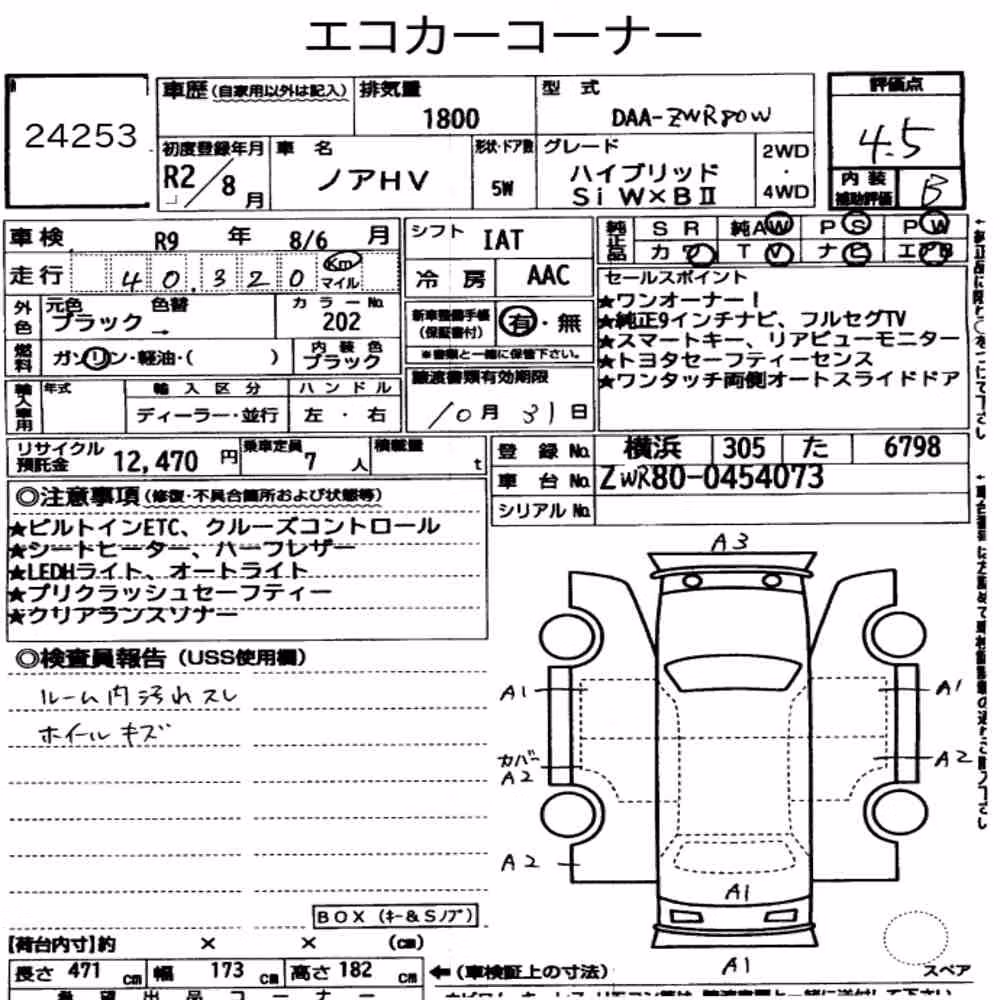 エコカーコーナー
24253
車歴 (自家用以外は記入) 排気量 1800 型式 DAA-ZWR80W 評価点 4.5
初度登録年月 R2/8月 車名 ノアHV 形状・ドア数 5W グレード ハイブリッド Si W×BⅡ 2WD・4WD 内装補助評価 B
車検 R9年 8/6月 シフト IAT 純正品 SR 純AW PS PW
走行 40,320 Km マイル 冷房 AAC カワ TV ナビ エアB
外色 元色 ブラック → 色替 カラーNo. 202 新車整備手帳(保証書付) 有・無
燃料 ガソリン・軽油・( ) 内装色 ブラック ※書類と一緒に保管下さい。
セールスポイント
★ワンオーナー!
★純正9インチナビ、フルセグTV
★スマートキー、リアビューモニター
★トヨタセーフティーセンス
★ワンタッチ両側オートスライドドア
輸入車用 年式 輸入区分 ディーラー・並行 ハンドル 左・右 譲渡書類有効期限 10月31日
リサイクル預託金 12,470円 乗車定員 7人 積載量 t 登録No. 横浜 305 た 6798
車台No. ZWR80-0454073
シリアルNo.
◎注意事項 (修復・不具合箇所および状態等)
★ビルトインETC、クルーズコントロール
★シートヒーター、ハーフレザー
★LEDHライト、オートライト
★プリクラッシュセーフティー
★クリアランスソナー
◎検査員報告 (USS使用欄)
ルーム内汚れスレ
ホイールキズ
A3
A1 A1
カバー A2 A2
A2
A1
A1
スペア
BOX (キー&Sノブ)
【荷台内寸】約 × × (cm)
長さ 471 cm 幅 173 cm 高さ 182 cm ←(車検証上の寸法)
希望出品コーナー